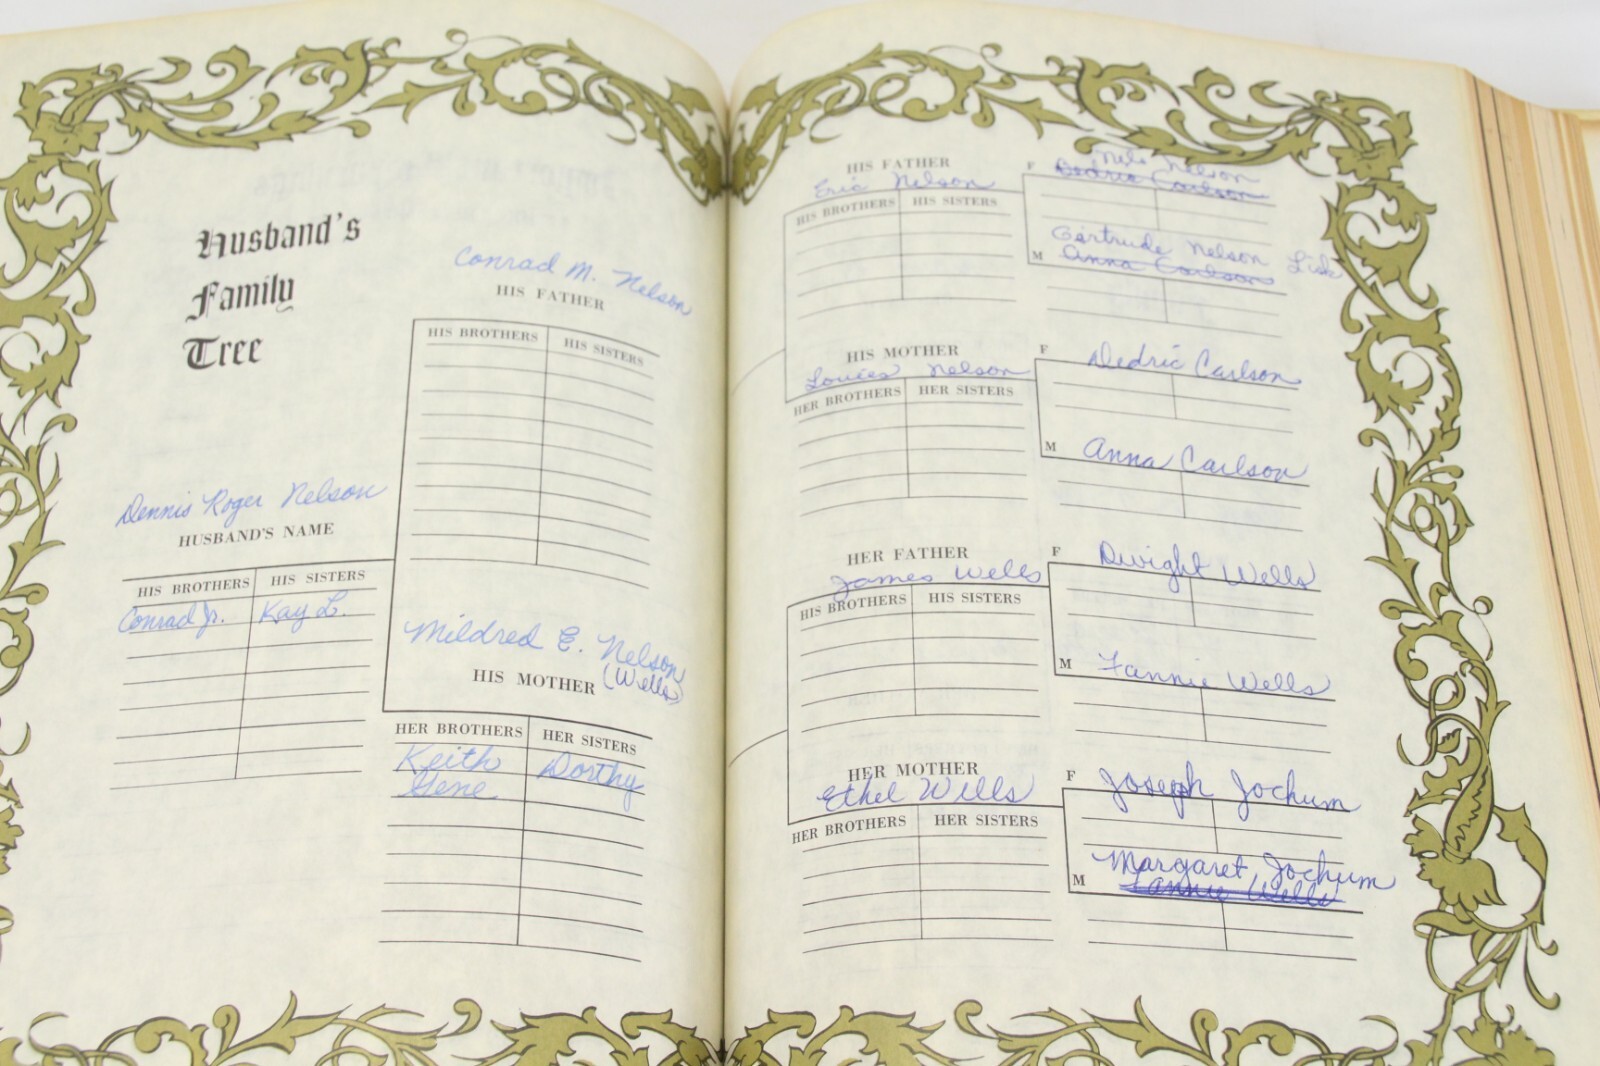 Husband's
Family
Tree
Conrad M. Nelson
HIS FATHER
HIS BROTHERS HIS SISTERS
Dennis Roger Nelson
HUSBAND'S NAME
HIS BROTHERS HIS SISTERS
Conrad Jr. Kay L.
Mildred E. Nelson
(Wells)
HIS MOTHER
HER BROTHERS HER SISTERS
Keith Dorthy
Gene
HIS FATHER
Eric Nelson
HIS BROTHERS HIS SISTERS
F Nels Nelson
Dedric Carlson
Gertrude Nelson Lisk
M Anna Carlson
HIS MOTHER
Louies Nelson
HER BROTHERS HER SISTERS
F Dedric Carlson
M Anna Carlson
HER FATHER
James Wells
HIS BROTHERS HIS SISTERS
F Dwight Wells
M Fannie Wells
HER MOTHER
Ethel Wells
HER BROTHERS HER SISTERS
F Joseph Jochum
Margaret Jochum
M Fannie Wells